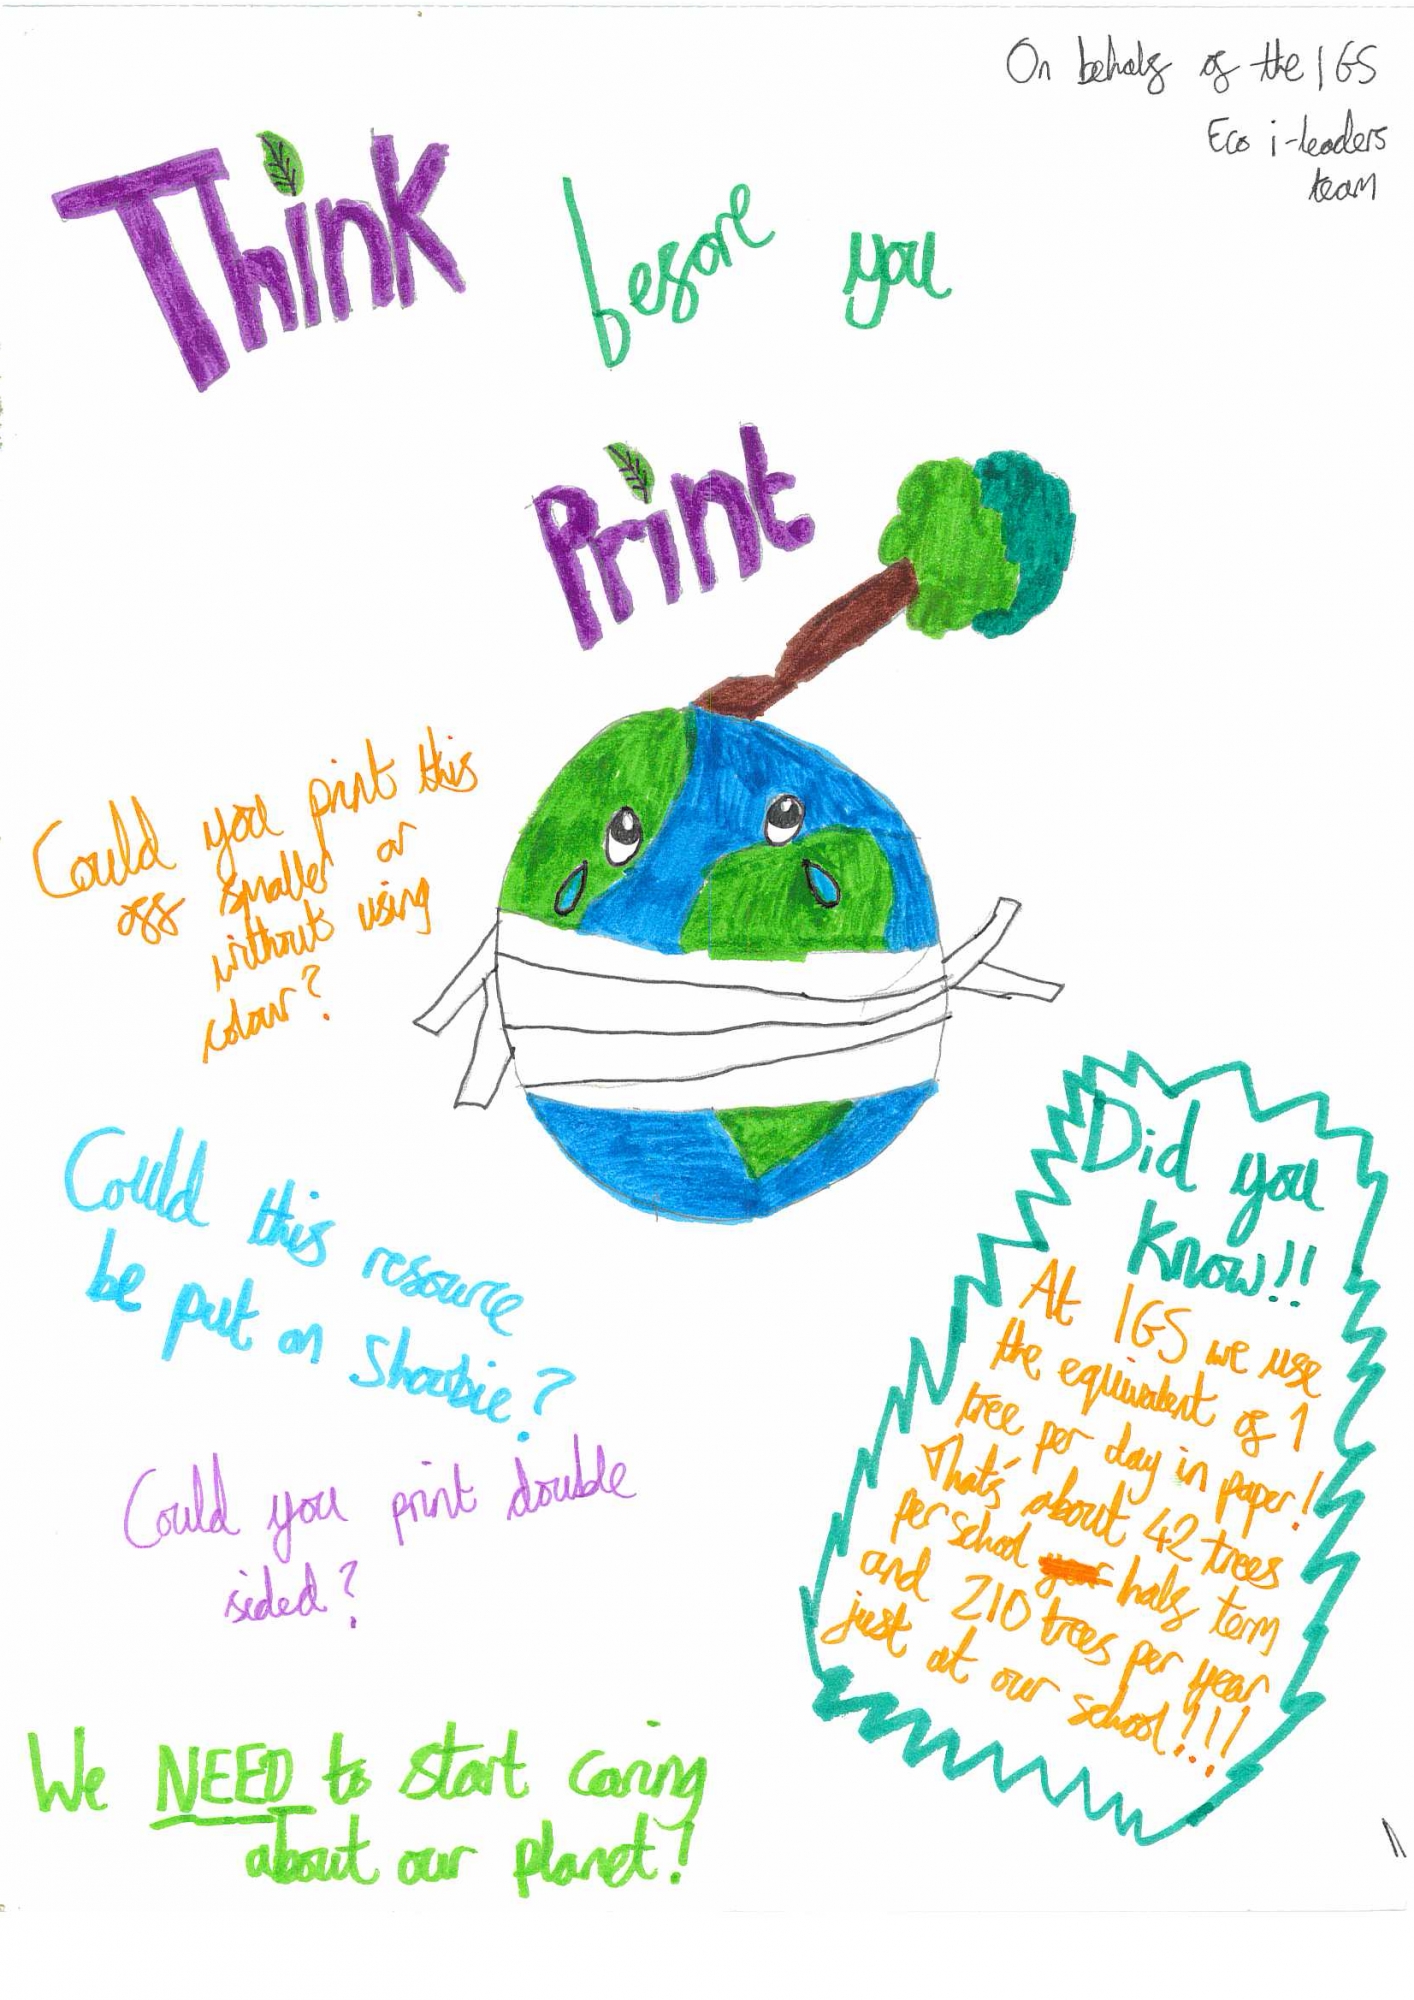 On behalf of the IGS
Eco i-leaders
team
Think before you
Print
Could you print this
off smaller or
without using
colour?
Could this resource
be put on Showbie?
Could you print double
sided?
Did you
know!!
At IGS we use
the equivalent of 1
tree per day in paper!
That's about 42 trees
per school half term
and 210 trees per year
just at our school!!!
We NEED to start caring
about our planet!